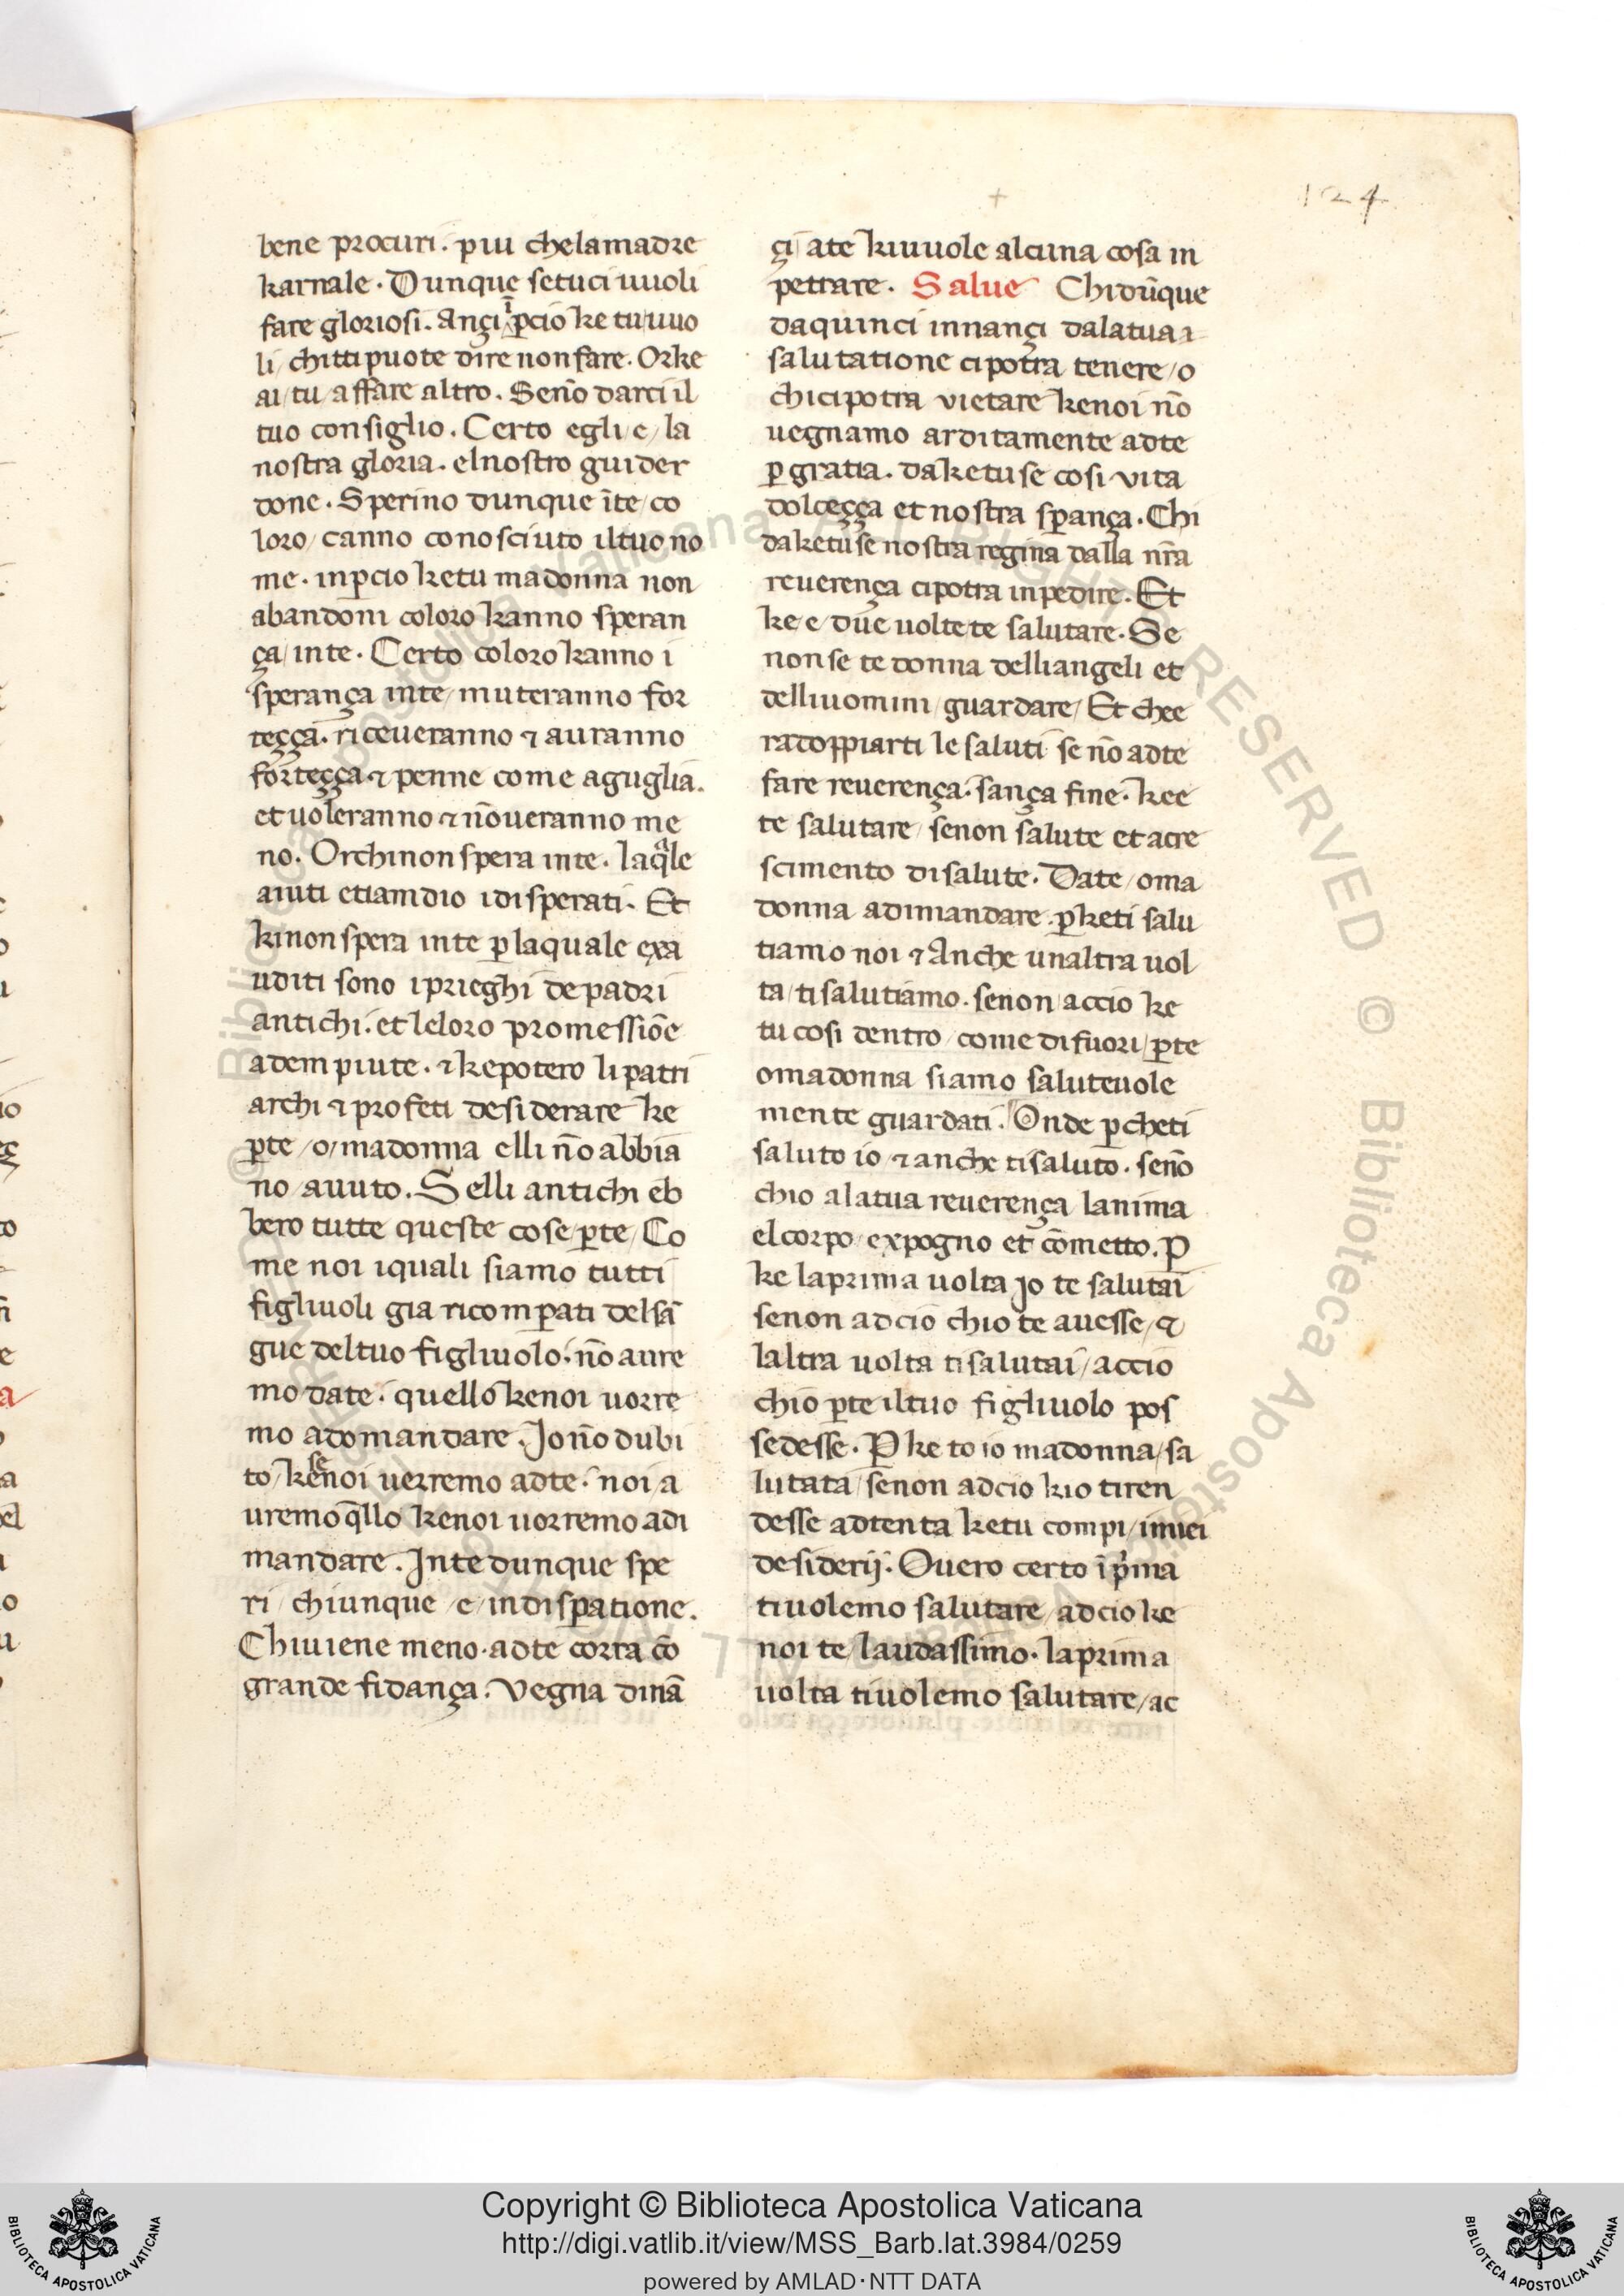 124
bene procuri. piu chelamadre
karnale. Dunque setuci uuoli
fare gloriosi. Ançi īp̱cio ke tu/uuo
li/ chitti puote dire nonfare. Orke
ai/tu/affare altro. Seno̅ darci il
tuo consiglio. Certo egli/e/la
nostra gloria. elnostro guider
done. Sperino dunque i̅te/co
loro/canno conosciuto iltuo no
me. inp̱cio ketu madonna non
abandoni coloro kanno speran
ça/inte. Certo coloro kanno i
sperança inte/muteranno for
teçça. riceueranno ⁊ auranno
forteçça ⁊ penne come aguglia.
et uoleranno ⁊ no̅ueranno me
no. Orchinon spera inte. laq̄le
aiuti etiamdio idisperati. Et
kinon spera inte p̱laquale exa
uditi sono iprieghi depadri
antichi. et leloro promessio̅e
adempiute. ⁊ kepotero lipatri
archi ⁊ profeti desiderare ke
p̱te/o/madonna elli no̅ abbia
no/auuto. Selli antichi eb
bero tutte queste cose/p̱te/Co
me noi iquali siamo tutti
figliuoli gia ricomp̱ati delsa̅
gue deltuo figliuolo. no̅ aure
mo date. quello kenoi uorre
mo adomandare. Jo no̅ dubi
to/ke se noi uerremo adte. noi/a
uremo q̄llo kenoi uorremo adi
mandare. Inte dunque spe
ri/chiunque/e/indisp̱atione.
Chiuiene meno. adte corra co̅
grande fidança. Vegna dina̅
çi ate kiuuole alcuna cosa in
petrare. Salue Chidu̅que
daquinci innançi dalatua
salutatione cipotra tenere/o
chicipotra vietare kenoi no̅
uegnamo arditamente adte
p̱ gratia. daketuse cosi vita
dolceçça et nostra sp̱ança. Chi
daketuse nostra regina dalla nr̅a
reuerença cipotra inpedire. Et
ke/e/due uolte te salutare. Se
non se te donna delliangeli et
delliuomini/guardare/Et chee
radoppiarti le saluti se no̅ adte
fare reuerença. sança fine. kee
te salutare/senon salute et acre
scimento disalute. Date/oma
donna adimandare. p̱keti salu
tiamo noi ⁊ Anche unaltra uol
ta/tisalutiamo. senon/accio ke
tu cosi dentro/come difuori/p̱te
omadonna siamo saluteuole
mente guardati. Onde p̱cheti
saluto io ⁊ anche tisaluto. seno̅
chio alatua reuerença lanima
elcorpo/expogno et co̅metto. P̱
ke laprima uolta jo te salutai
senon adcio chio te auesse/⁊
laltra uolta tisalutai/accio
chio p̱te iltuo figliuolo pos
sedesse. P̱ke to io madonna/sa
lutata/senon adcio kio tiren
desse adtenta ketu compi/imiei
desiderij. Ouero certo i̅ p̍ma
tiuolemo salutare/adcio ke
noi te/laudassimo. laprima
uolta tiuolemo salutare/ac
© Biblioteca Apostolica Vaticana ALL RIGHTS RESERVED © Biblioteca Apostolica Vaticana ALL RIGHTS RESERVED
BIBLIOTECA APOSTOLICA VATICANA
Copyright © Biblioteca Apostolica Vaticana
http://digi.vatlib.it/view/MSS_Barb.lat.3984/0259
powered by AMLAD·NTT DATA
BIBLIOTECA APOSTOLICA VATICANA